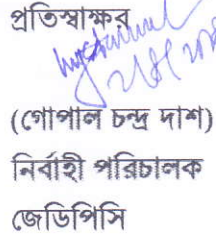 প্রতিস্বাক্ষর
(গোপাল চন্দ্র দাশ)
নির্বাহী পরিচালক
জেডিপিসি